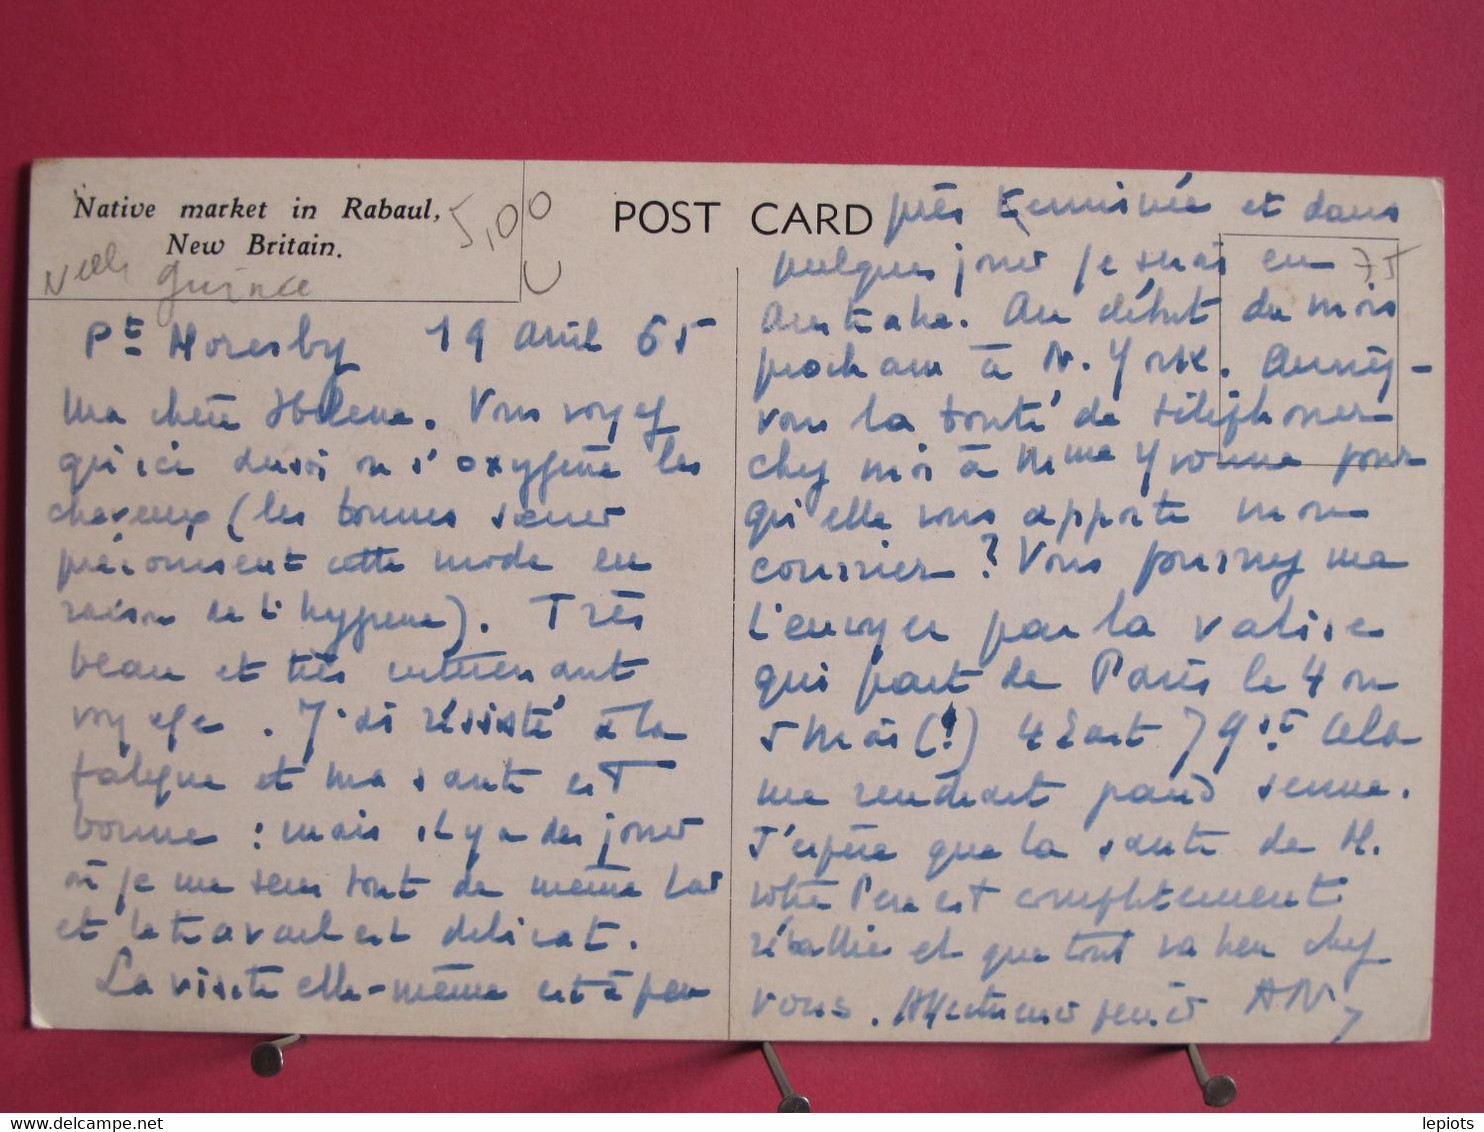 Native market in Rabaul,
New Britain.
Nelle Guinée
5,00
POST CARD
75
Pt Moresby 19 Avril 65
Ma chère Hélène. Vous voyez
qu'ici aussi on s'oxygène les
cheveux (les bonnes sœurs
préconisent cette mode en
raison de l'hygiène). Très
beau et très intéressant
voyage. J'ai résisté à la
fatigue et ma santé est
bonne : mais il y a des jours
où je me sens tout de même las
et le travail est délicat.
La visite elle-même est à peu
près terminée et dans
quelques jours je serai en
Australie. Au début du mois
prochain à N. York. Auriez-
vous la bonté de téléphoner
chez moi à Mme Yvonne pour
qu'elle vous apporte mon
courrier ? Vous pourriez me
l'envoyer par la valise
qui part de Paris le 4 ou
5 Mai (!) 4 East 79 St Cela
me rendrait grand service.
J'espère que la santé de M.
votre Père est complètement
rétablie et que tout va bien chez
vous. Affectueuses pensées AN
lepiots